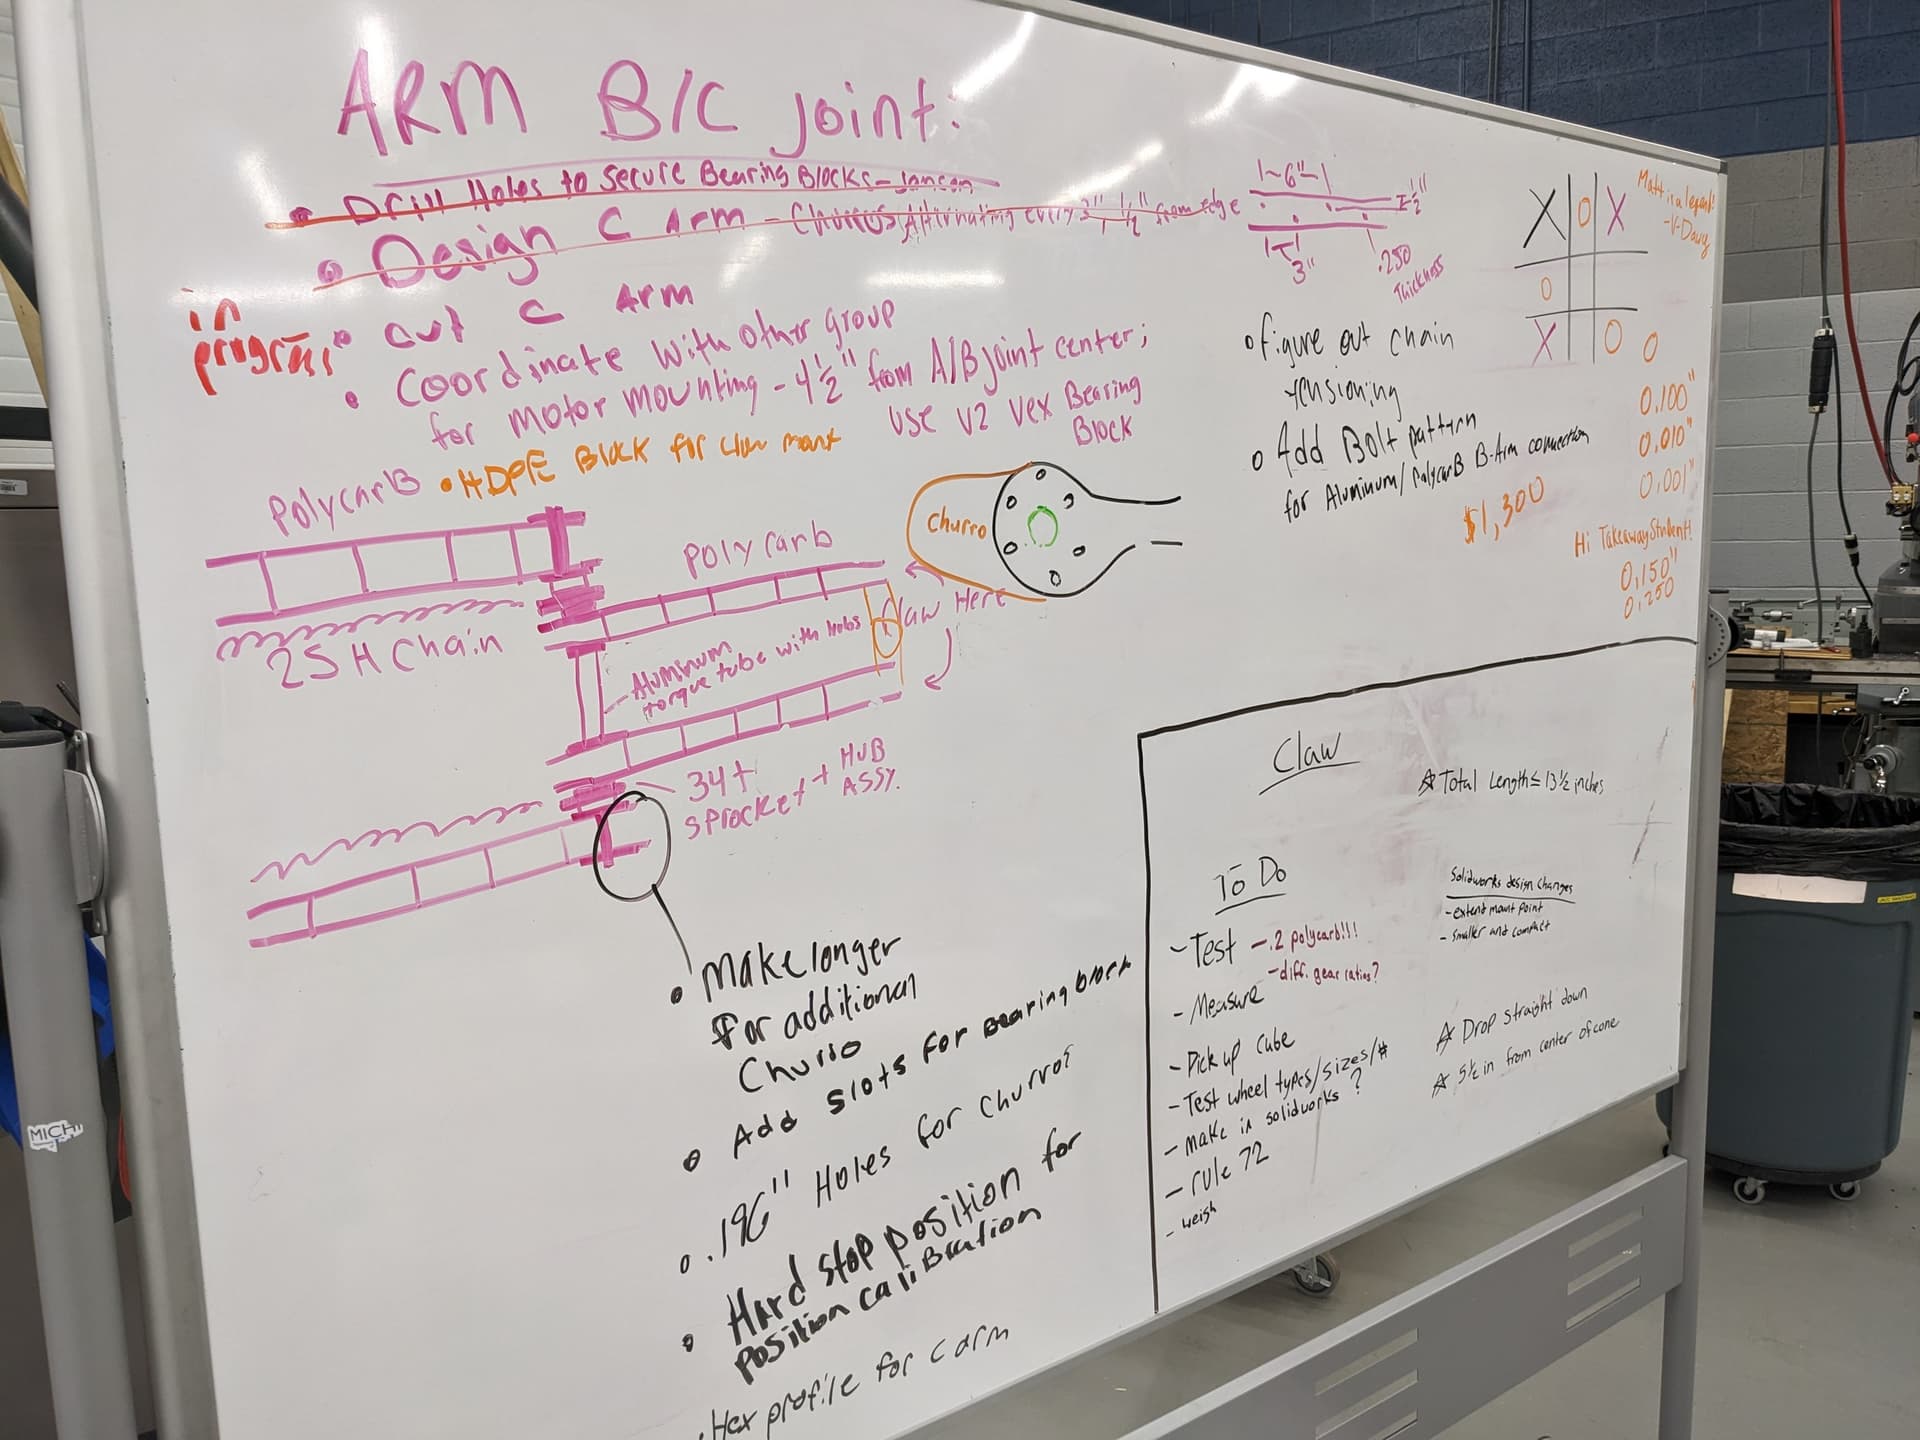 ARM B/C joint:
• Drill Holes to Secure Bearing Blocks - 
• Design C Arm - Churros Alternating every 3" 1/2" from edge
in progress
• cut C Arm
• Coordinate with other group
for motor mounting - 4 1/2" from A/B joint center;
use v2 Vex Bearing
Block
• HDPE Block for claw mont
|-6"-|
I 1/2"
3"
.250
Thickness
X O X
O
X O O
Matt is a legend!
-V-Dawg
o figure out chain
tensioning
o Add Bolt pattern
for Aluminum/Polycarb B-Arm connection
$1,300
0.100"
0.010"
0.001"
Hi Takeaway Student!
0.150"
0.250
PolycarB
25H Chain
Polycarb
Churro
Claw Here
Aluminum
torque tube with Hubs
34t
sprocket + HUB
ASSY.
• Make longer
For additional
Churro
• Add slots for Bearing block
o .196" Holes for Churros
• Hard stop position for
position caliBration
. Hex profile for C arm
Claw
☆ Total Length ≤ 13 1/2 inches
To Do
- Test - .2 polycarb!!!
- diff. gear ratios?
- Measure
- Pick up Cube
- Test wheel types/sizes/#
- make in solidworks ?
- rule 72
- weigh
Solidworks design changes
- extend mount point
- smaller and compact
☆ Drop straight down
☆ 5 1/2 in from center of cone
MICH